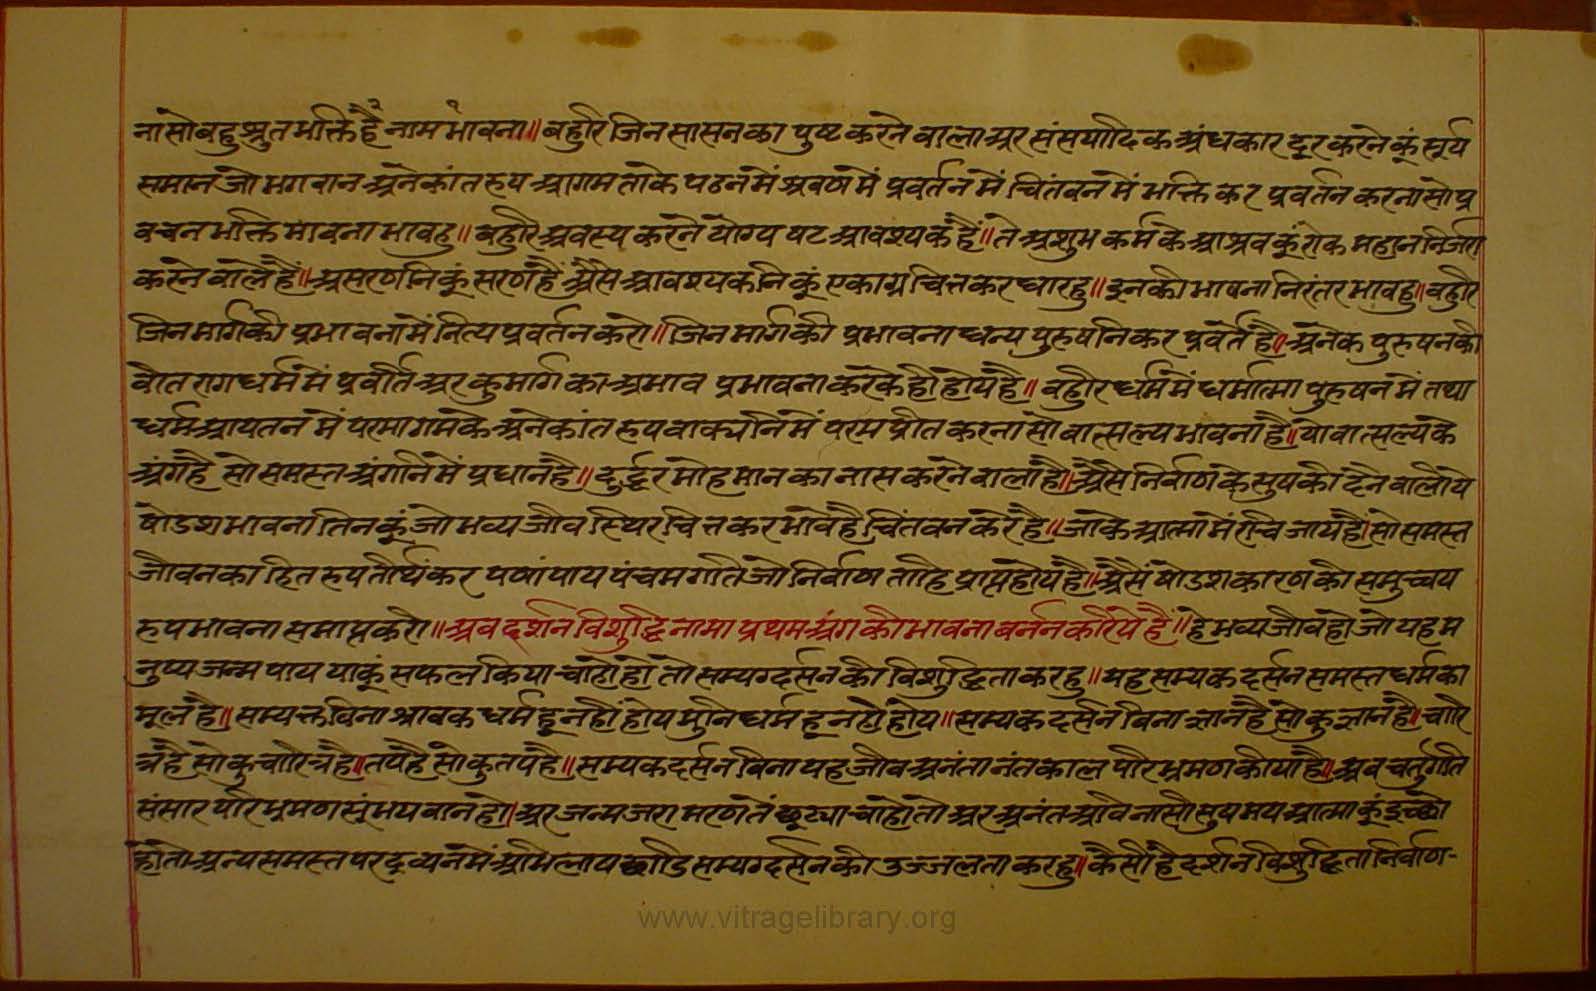 ना सो बहुश्रुत भक्ति है नाम भावना॥ बहुरि जिन सासन का पुष्ट करने वाला अर संसयादिक अंधकार दूर करने कूं सूर्य
समान जो भगवान अनेकांत रुप आगम ताके पठन में श्रवण में प्रवर्तन में चिंतवन में भक्ति कर प्रवर्तन करना सो प्र
वचन भक्ति भावना भावहु॥ बहुरि अवस्य करने योग्य षट आवश्यक हैं॥ ते अशुभ कर्म के आश्रव कूं रोक महान निर्जरा
करने वाले हैं॥ असरणनि कूं सरण हैं अैसे आवश्यकनि कूं एकाग्र चित्त कर धारहु॥ इनकी भावना निरंतर भावहु॥ बहुरि
जिन मार्ग की प्रभावना में नित्य प्रवर्तन करो॥ जिन मार्ग की प्रभावना धन्य पुरुषनि कर प्रवर्ते है॥ अनेक पुरुषन की
वीतराग धर्म में प्रवर्ति अर कुमार्ग का अभाव प्रभावना करके ही होय है॥ बहुरि धर्म में धर्मात्मा पुरुषन में तथा
धर्म आयतन में परमागम के अनेकांत रुप वाक्यनि में परम प्रीत करना सो वात्सल्य भावना है॥ यो वात्सल्य के
अंग है सो समस्त अंगनि में प्रधान है॥ दुर्द्धर मोह मान का नास करने वाला है॥ अैसे निर्वाण के सुष की देने वाली ये
षोडश भावना तिन कूं जो भव्य जीव स्थिर चित्त कर भावे है चिंतवन करे है॥ जाके आत्मा में रुचि जाय है॥ सो समस्त
जीवन का हित रुप तीर्थंकर पणां पाय पंचम गति जो निर्वाण ताहि प्राप्त होय है॥ अैसें षोडश कारण की समुच्चय
रुप भावना समाप्त करी॥ अब दर्शन विशुद्धि नामा प्रथम अंग की भावना बर्नन करिये हैं॥ हे भव्य जीव हो जो यह म
नुष्य जन्म पाय याकूं सफल किया चाहो हो तो सम्यग्दर्सन की विशुद्धिता करहु॥ यह सम्यक दर्सन समस्त धर्म का
मूल है॥ सम्यक्त विना श्रावक धर्म हू नहीं होय मुनि धर्म हू नही होय॥ सम्यक दर्सन विना ज्ञान है सो कुज्ञान है॥ चारि
त्र है सो कुचारित्र है॥ तप है सो कुतप है॥ सम्यक दर्सन विना यह जीव अनंतानंत काल परिभ्रमण कीया है॥ अब चर्तुगति
संसार परिभ्रमण सूं भयवान हो॥ अर जन्म जरा मरण तें छूट्या चाहो तो अर अनंत अविनासी सुषमय आत्मा कूं इच्छो
हो तो अन्य समस्त पर द्रव्यन में अभिलाष छाडि सम्यग्दर्सन की उज्जलता करहु॥ कैसी है दर्शन विशुद्धिता निर्वाण-
www.vitragelibrary.org